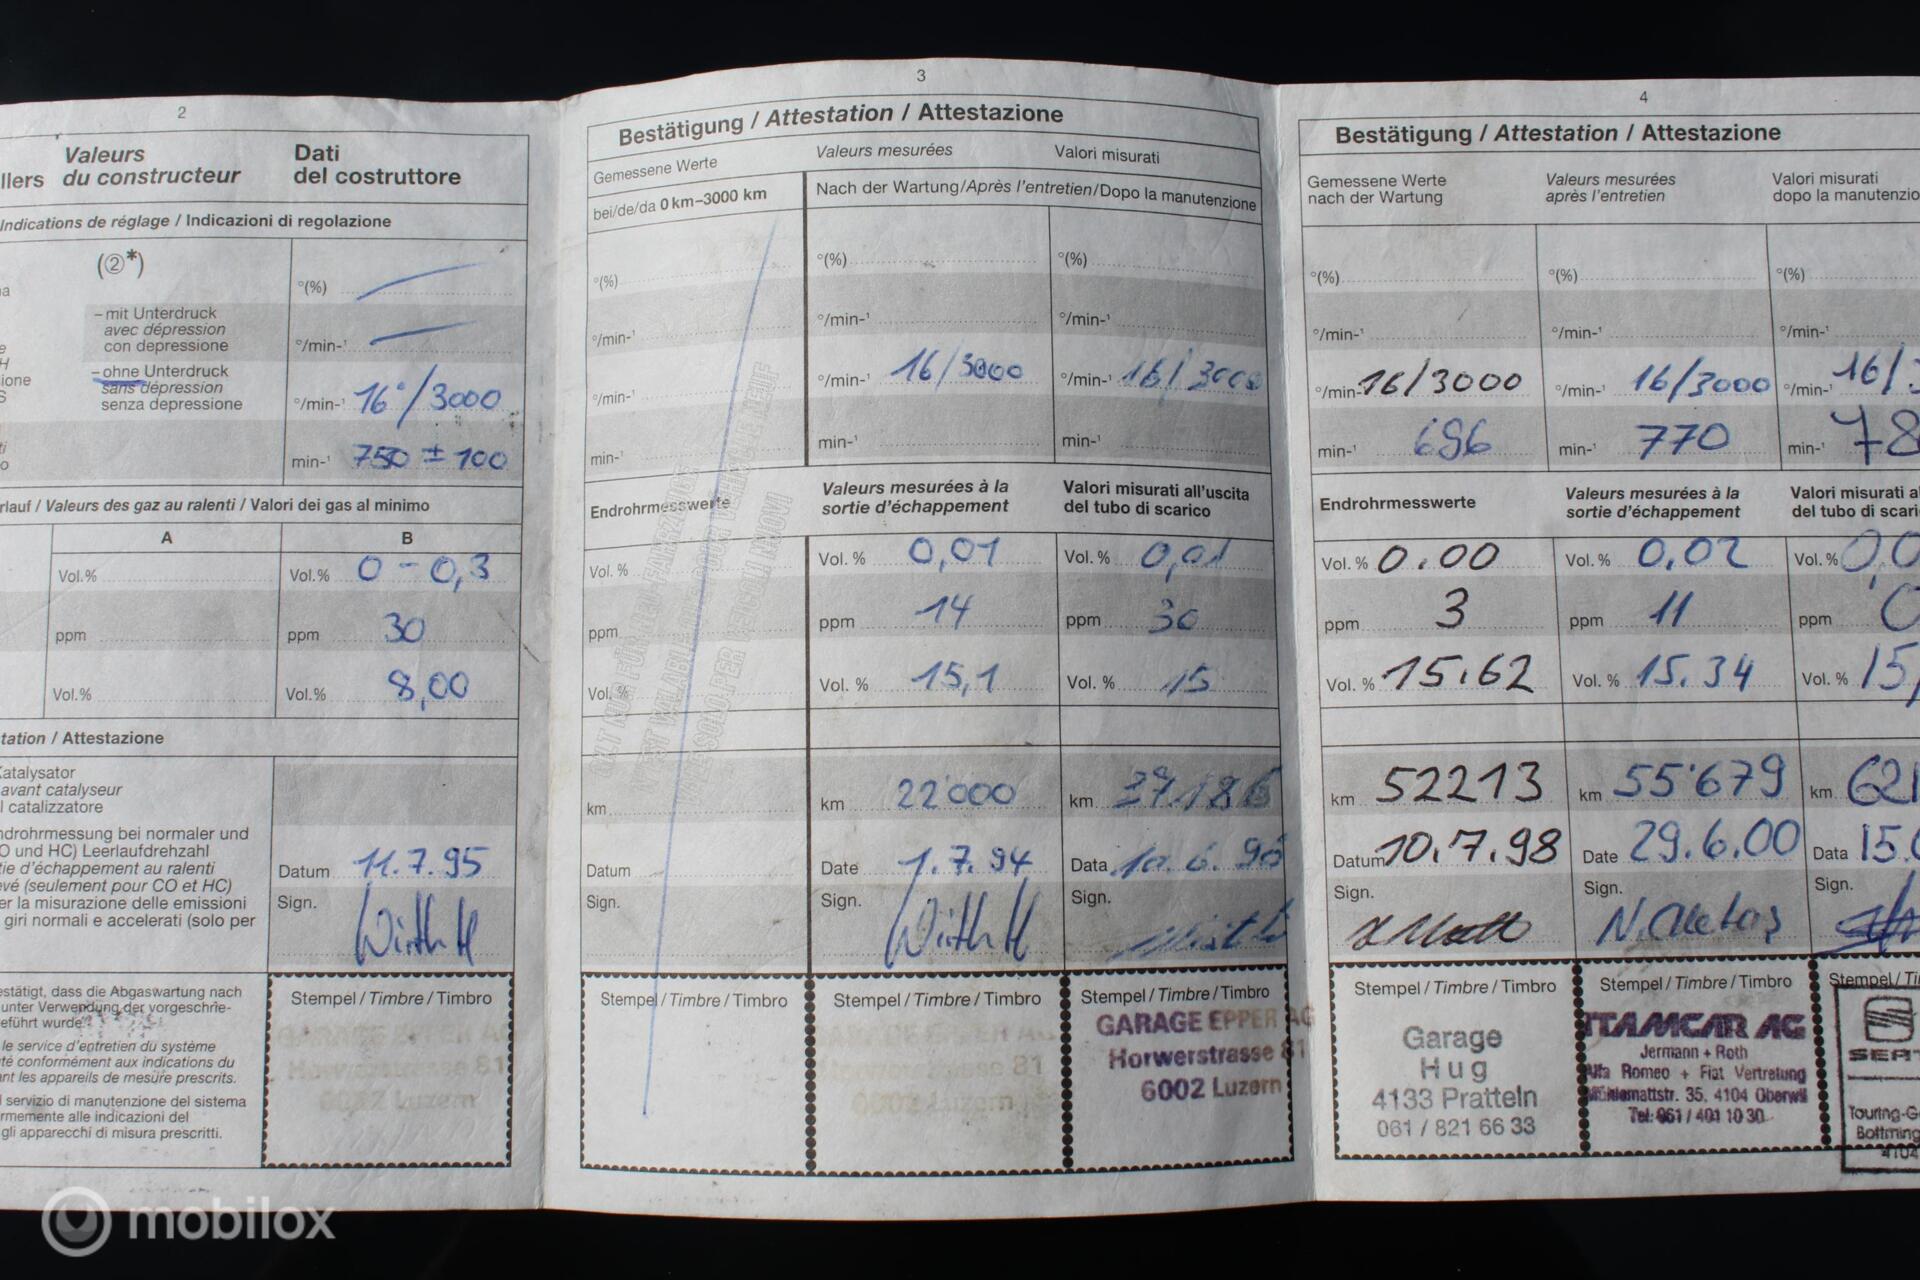 2
llers Valeurs du constructeur Dati del costruttore
Indications de réglage / Indicazioni di regolazione
(②*)
°(%)
– mit Unterdruck
avec dépression
con depressione
°/min-¹
– ohne Unterdruck
sans dépression
senza depressione
°/min-¹ 16°/3000
min-¹ 750 ± 100
rlauf / Valeurs des gaz au ralenti / Valori dei gas al minimo
A B
Vol.% Vol.% 0 - 0,3
ppm ppm 30
Vol.% Vol.% 8,00
tation / Attestazione
Katalysator
avant catalyseur
l catalizzatore
ndrohrmessung bei normaler und
O und HC) Leerlaufdrehzahl
tie d'échappement au ralenti
evé (seulement pour CO et HC)
er la misurazione delle emissioni
giri normali e accelerati (solo per
Datum 11.7.95
Sign.
estätigt, dass die Abgaswartung nach
unter Verwendung der vorgeschrie-
eführt wurde.
le service d'entretien du système
té conformément aux indications du
ant les appareils de mesure prescrits.
l servizio di manutenzione del sistema
rmemente alle indicazioni del
gli apparecchi di misura prescritti.
Stempel / Timbre / Timbro
GARAGE EPPER AG
Horwerstrasse 81
6002 Luzern
3
Bestätigung / Attestation / Attestazione
Gemessene Werte Valeurs mesurées Valori misurati
bei/de/da 0 km–3000 km Nach der Wartung/Après l'entretien/Dopo la manutenzione
°(%) °(%) °(%)
°/min-¹ °/min-¹ °/min-¹
°/min-¹ °/min-¹ 16/3000 °/min-¹ 16/3000
min-¹ min-¹ min-¹
Endrohrmesswerte Valeurs mesurées à la sortie d'échappement Valori misurati all'uscita del tubo di scarico
Vol. % Vol. % 0,01 Vol. % 0,01
ppm ppm 14 ppm 30
Vol. % Vol. % 15,1 Vol. % 15
GILT NUR FÜR NEUFAHRZEUGE
km km 22'000 km
Datum Date 1.7.94 Data
Sign. Sign. Sign.
Stempel / Timbre / Timbro Stempel / Timbre / Timbro Stempel / Timbre / Timbro
GARAGE EPPER AG GARAGE EPPER AG
Horwerstrasse 81 Horwerstrasse 81
6002 Luzern 6002 Luzern
4
Bestätigung / Attestation / Attestazione
Gemessene Werte nach der Wartung Valeurs mesurées après l'entretien Valori misurati dopo la manutenzio
°(%) °(%) °(%)
°/min-¹ °/min-¹ °/min-¹
°/min-¹ 16/3000 °/min-¹ 16/3000 °/min-¹ 16/3
min-¹ 696 min-¹ 770 min-¹ 78
Endrohrmesswerte Valeurs mesurées à la sortie d'échappement Valori misurati al del tubo di scari
Vol. % 0.00 Vol. % 0,02 Vol. % 0,0
ppm 3 ppm 11 ppm 0
Vol. % 15.62 Vol. % 15.34 Vol. % 15,
km 52213 km 55'679 km 621
Datum 10.7.98 Date 29.6.00 Data 15.
Sign. Sign. Sign.
Stempel / Timbre / Timbro Stempel / Timbre / Timbro Stempel / Ti
Garage
Hug
4133 Pratteln
061 / 821 66 33
ITAMCAR AG
Jermann + Roth
Alfa Romeo + Fiat Vertretung
Mühlemattstr. 35, 4104 Oberwil
Tel: 061 / 401 10 30
SEAT
Touring-G
Bottming
4104
mobilox